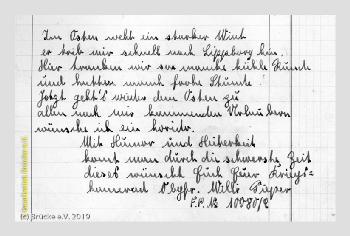 Im Osten weht ein starker Wint
er trieb mir schnell nach Lippborg hin.
Hier tranken wir so manche kühle Runde
und hatten manch frohe Stunde.
Jetzt geht's wieder dem Osten zu
allen nach mir kommenden Urlaubern
wünsche ich ein horido.
Mit Humor und Heiterkeit
komt man durch die schwerste Zeit
dieses wünscht Euch Euer Kriegs-
kamerad Obgfr. Willi
F.P.N
(c) Brücke e.V. 2019